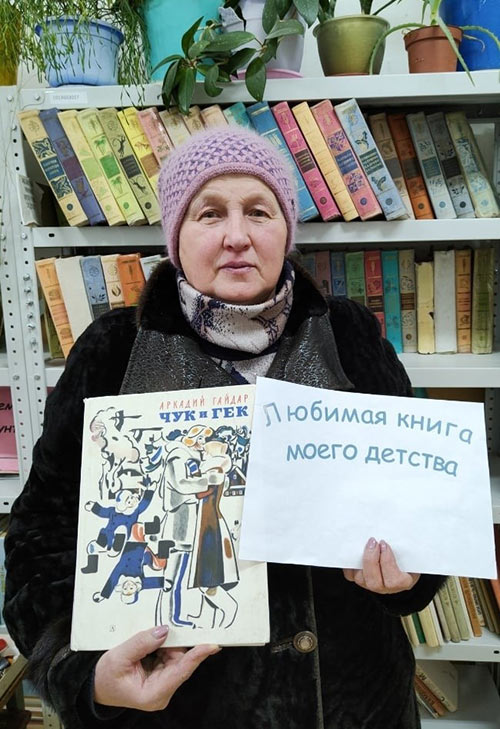 АРКАДИЙ ГАЙДАР
ЧУК и ГЕК
Любимая книга
моего детства